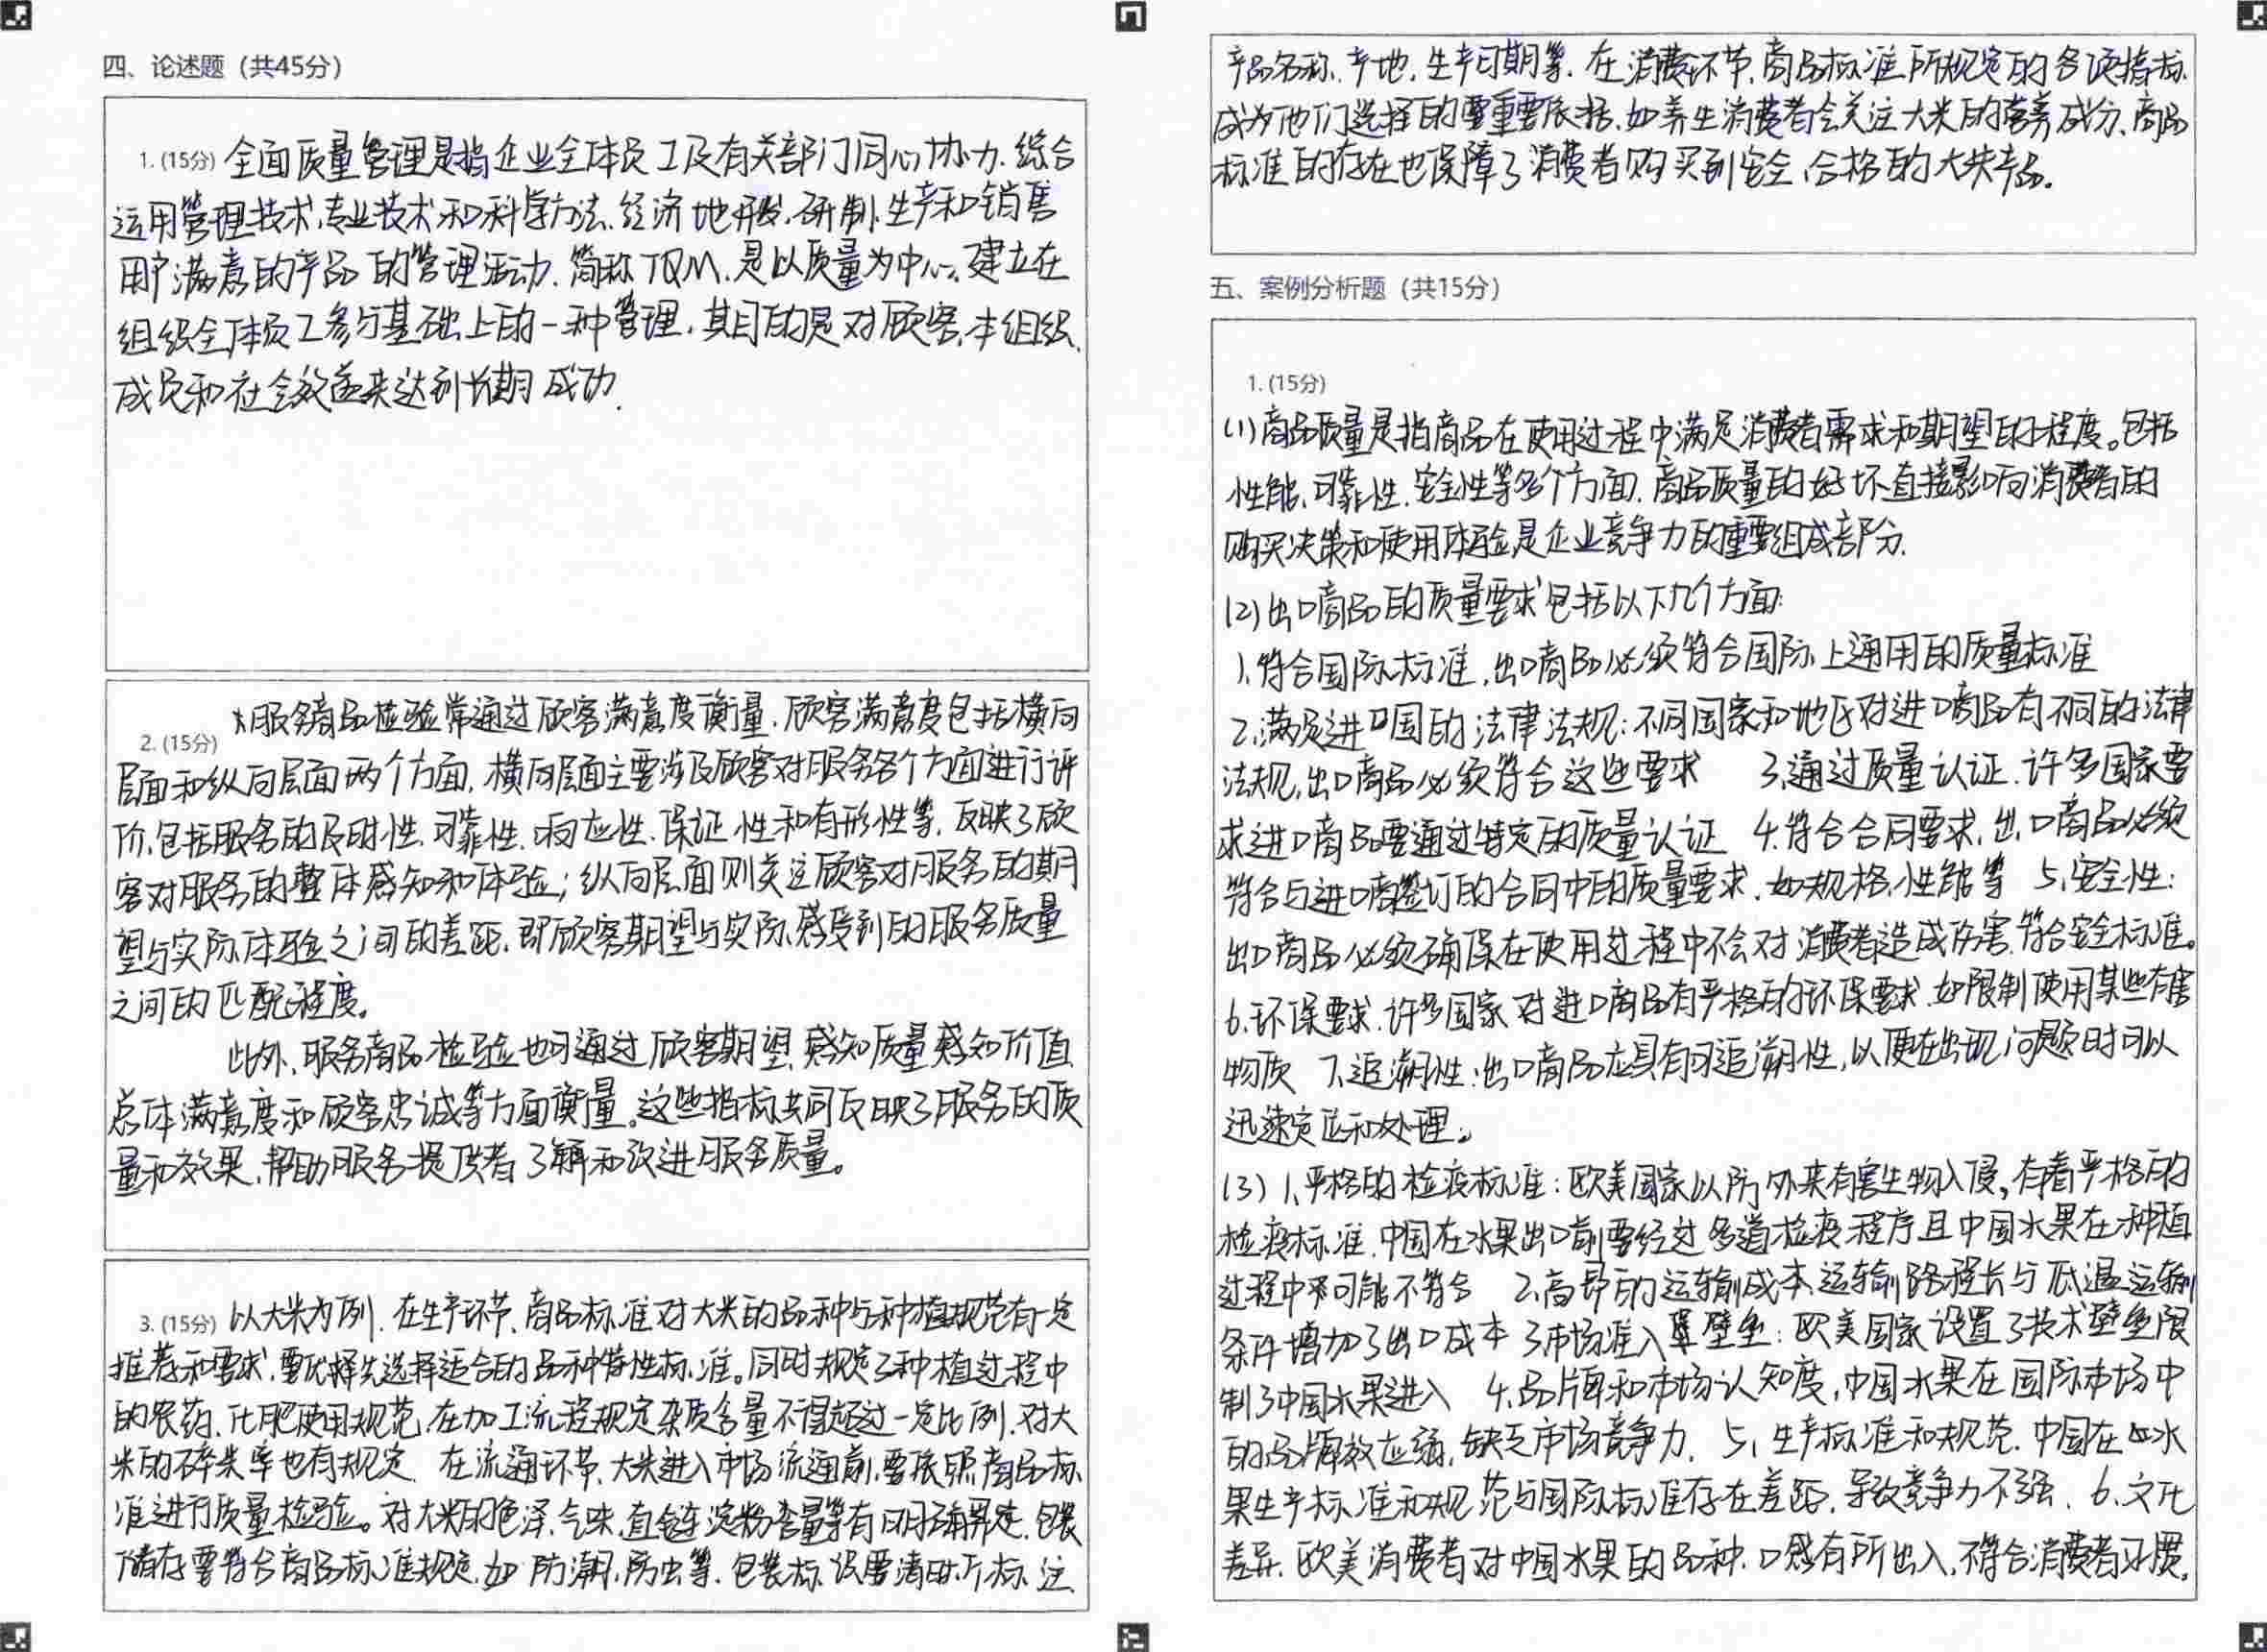 四、论述题（共45分）
1. (15分) 全面质量管理是指企业全体员工及有关部门同心协力，综合
运用管理技术、专业技术和科学方法，经济地开发、研制、生产和销售
用户满意的产品的管理活动，简称TQM，是以质量为中心。建立在
组织全体员工参与基础上的一种管理，其目的是对顾客，本组织，
成员和社会效益来达到长期成功.
2. (15分) 服务商品检验常通过顾客满意度衡量，顾客满意度包括横向
层面和纵向层面两个方面，横向层面主要涉及顾客对服务各个方面进行评
价，包括服务的及时性、可靠性、响应性、保证性和有形性等，反映了顾
客对服务的整体感知和体验；纵向层面则关注顾客对服务的期
望与实际体验之间的差距，即顾客期望与实际感受到的服务质量
之间的匹配程度。
此外，服务商品检验也可通过顾客期望、感知质量感知价值、
总体满意度和顾客忠诚等方面衡量。这些指标共同反映了服务的质
量和效果，帮助服务提供者了解和改进服务质量。
3. (15分) 以大米为例，在生产环节，商品标准对大米的品种与种植规范有一定
推荐和要求，要优先选择适合的品种特性标准。同时规定了种植过程中
的农药、化肥使用规范，在加工流程规定杂质含量不得超过一定比例，对大
米的碎米率也有规定．在流通环节，大米进入市场流通前，要依照商品标
准进行质量检验。对大米的色泽、气味、直链淀粉含量等有明确界定，包装
储存要符合商品标准规定，如防潮、防虫等，包装标识要清晰标注
产品名称、产地、生产日期等．在消费环节，商品标准所规定的各项指标
成为他们选择的重要依据，如养生消费者会关注大米的营养成分、商品
标准的存在也保障了消费者购买到安全、合格的大米产品。
五、案例分析题（共15分）
1. (15分)
(1)商品质量是指商品在使用过程中满足消费者需求和期望的程度。包括
性能、可靠性、安全性等多个方面．商品质量的好坏直接影响消费者的
购买决策和使用体验是企业竞争力的重要组成部分．
(2)出口商品的质量要求包括以下几个方面：
1、符合国际标准，出口商品必须符合国际上通用的质量标准
2、满足进口国的法律法规：不同国家和地区对进口商品有不同的法律
法规，出口商品必须符合这些要求 3、通过质量认证．许多国家要
求进口商品要通过特定的质量认证 4、符合合同要求，出口商品必须
符合与进口商签订的合同中的质量要求，如规格、性能等 5、安全性：
出口商品必须确保在使用过程中不会对消费者造成伤害，符合安全标准。
6、环保要求．许多国家对进口商品有严格的环保要求，如限制使用某些有害
物质 7、追溯性：出口商品应具有可追溯性，以便在出现问题时可以
迅速定位和处理。
(3) 1、严格的检疫标准：欧美国家以防外来有害生物入侵，有着严格的
检疫标准，中国在水果出口前要经过多道检疫程序且中国水果在种植
过程中可能不符合 2、高昂的运输成本，运输路程长与低温运输
条件增加了出口成本 3、市场准入壁垒：欧美国家设置了技术壁垒限
制了中国水果进入 4、品牌和市场认知度，中国水果在国际市场中
的品牌效应弱，缺乏市场竞争力． 5、生产标准和规范．中国在水
果生产标准和规范与国际标准存在差距，导致竞争力不强． 6、文化
差异，欧美消费者对中国水果的品种、口感有所出入，不符合消费者习惯．